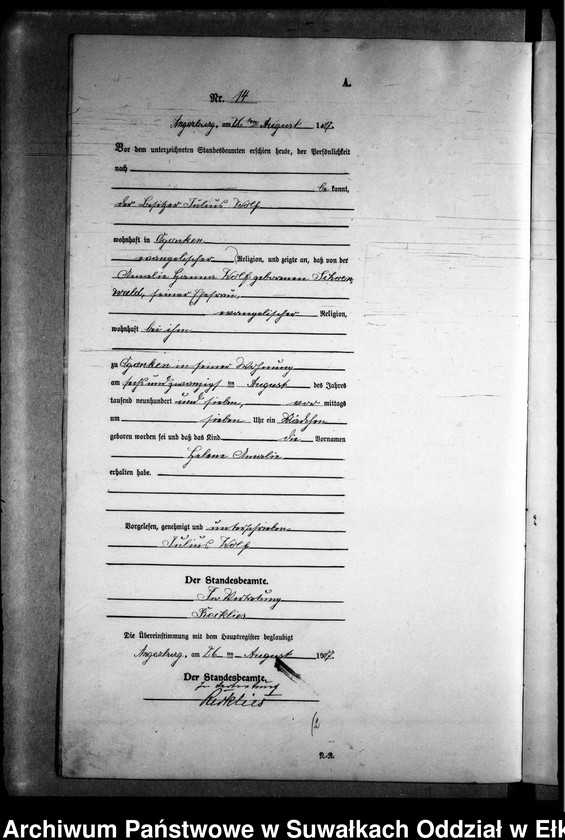 A.
Nr. 14
Angerburg, am 26 ten August 1907.
Vor dem unterzeichneten Standesbeamten erschien heute, der Persönlichkeit
nach
be kannt,
der Besitzer Julius Wolf
wohnhaft in Oganken
evangelischer Religion, und zeigte an, daß von der
Amalie Hanna Wolf geborenen Schoen
wald, seiner Ehefrau,
evangelischer Religion,
wohnhaft bei ihm
zu Oganken in seiner Wohnung
am sechsundzwanzigst en August des Jahres
tausend neunhundert und sieben, vor mittags
um sieben Uhr ein Mädchen
geboren worden sei und daß das Kind die Vornamen
Helene Amalie
erhalten habe.
Vorgelesen, genehmigt und unterschrieben
Julius Wolf
Der Standesbeamte.
In Vertretung
Die Übereinstimmung mit dem Hauptregister beglaubigt
Angerburg, am 26 ten August 1907.
Der Standesbeamte.
In Vertretung
Archiwum Państwowe w Suwałkach Oddział w Ełk